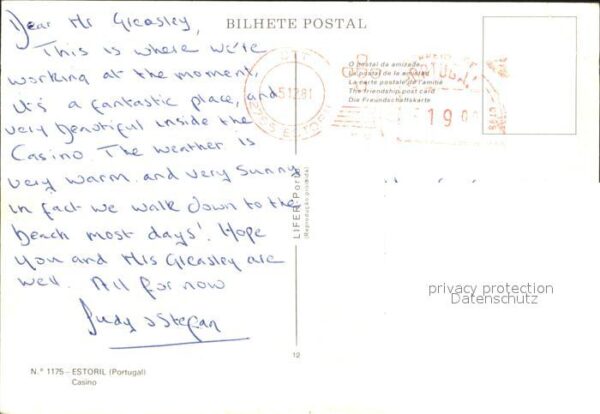 Dear Mr Gleasley,
This is where we're
working at the moment,
it's a fantastic place, and
very beautiful inside the
Casino. The weather is
very warm and very sunny
in fact we walk down to the
beach most days! Hope
you and Mrs Gleasley are
well. All for now
Judy & Stefan
N.º 1175 - ESTORIL (Portugal)
Casino
BILHETE POSTAL
O postal da amizade
La postal de la amistad
La carte postale de l'amitié
The friendship post card
Die Freundschaftskarte
51281
2765 ESTORIL
PORTUGAL
19
LIFER-Porto
(Reprodução proibida)
12
privacy protection
Datenschutz